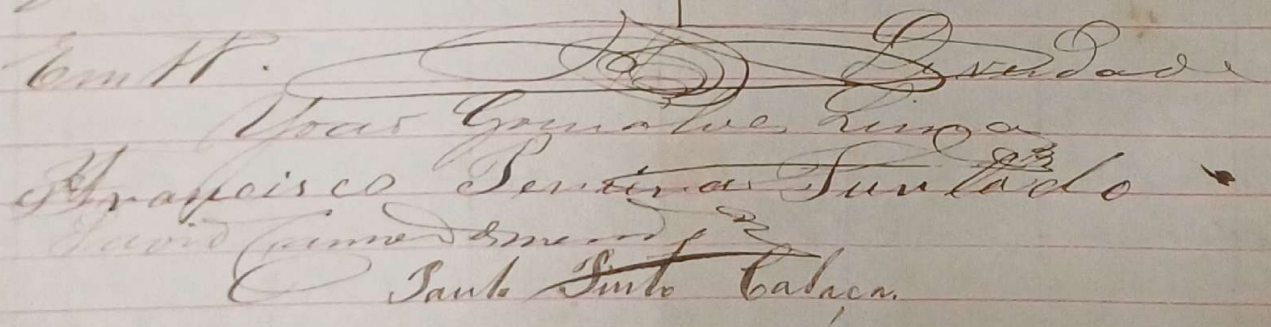 Em tt. De verdade
Joao Gonçalves Lima
Francisco Pereira Furtado
David
Paulo Pinto Calaça.